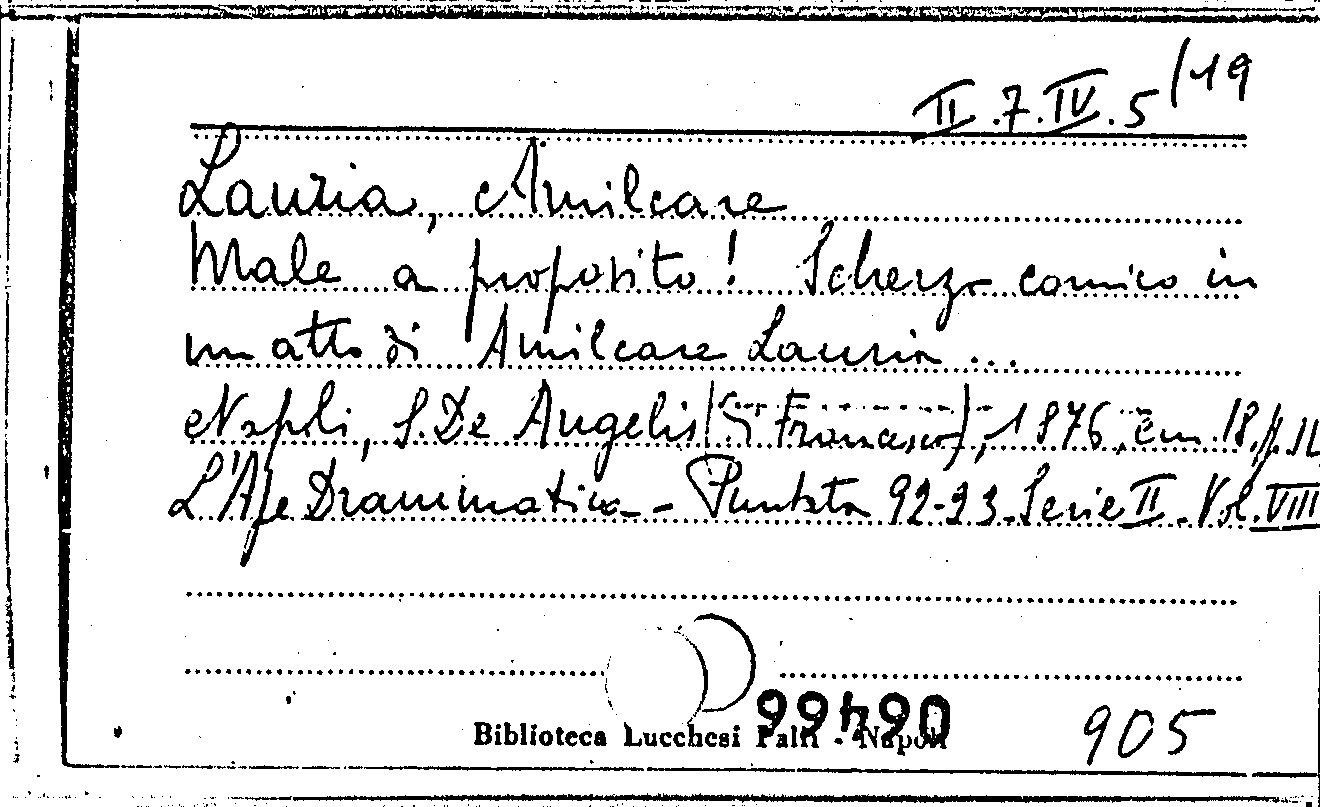 II.7.IV.5/19
Lauria, Amilcare
Male a proposito! Scherzo comico in
un atto di Amilcare Lauria...
Napoli, S. De Angelis (di Francesco), 1876, cm. 18, p.
L'Ape Drammatica - Puntata 92-93. Serie II. Vol. VIII
Biblioteca Lucchesi Palli - Napoli
905